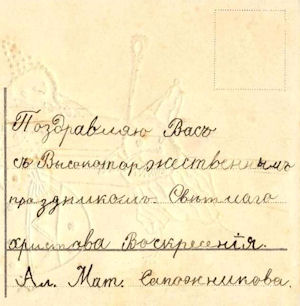 Поздравляю Васъ
съ Высокоторжественнымъ
праздникомъ Свѣтлаго
Христова Воскресенія.
Ал. Мат. Сапожникова.